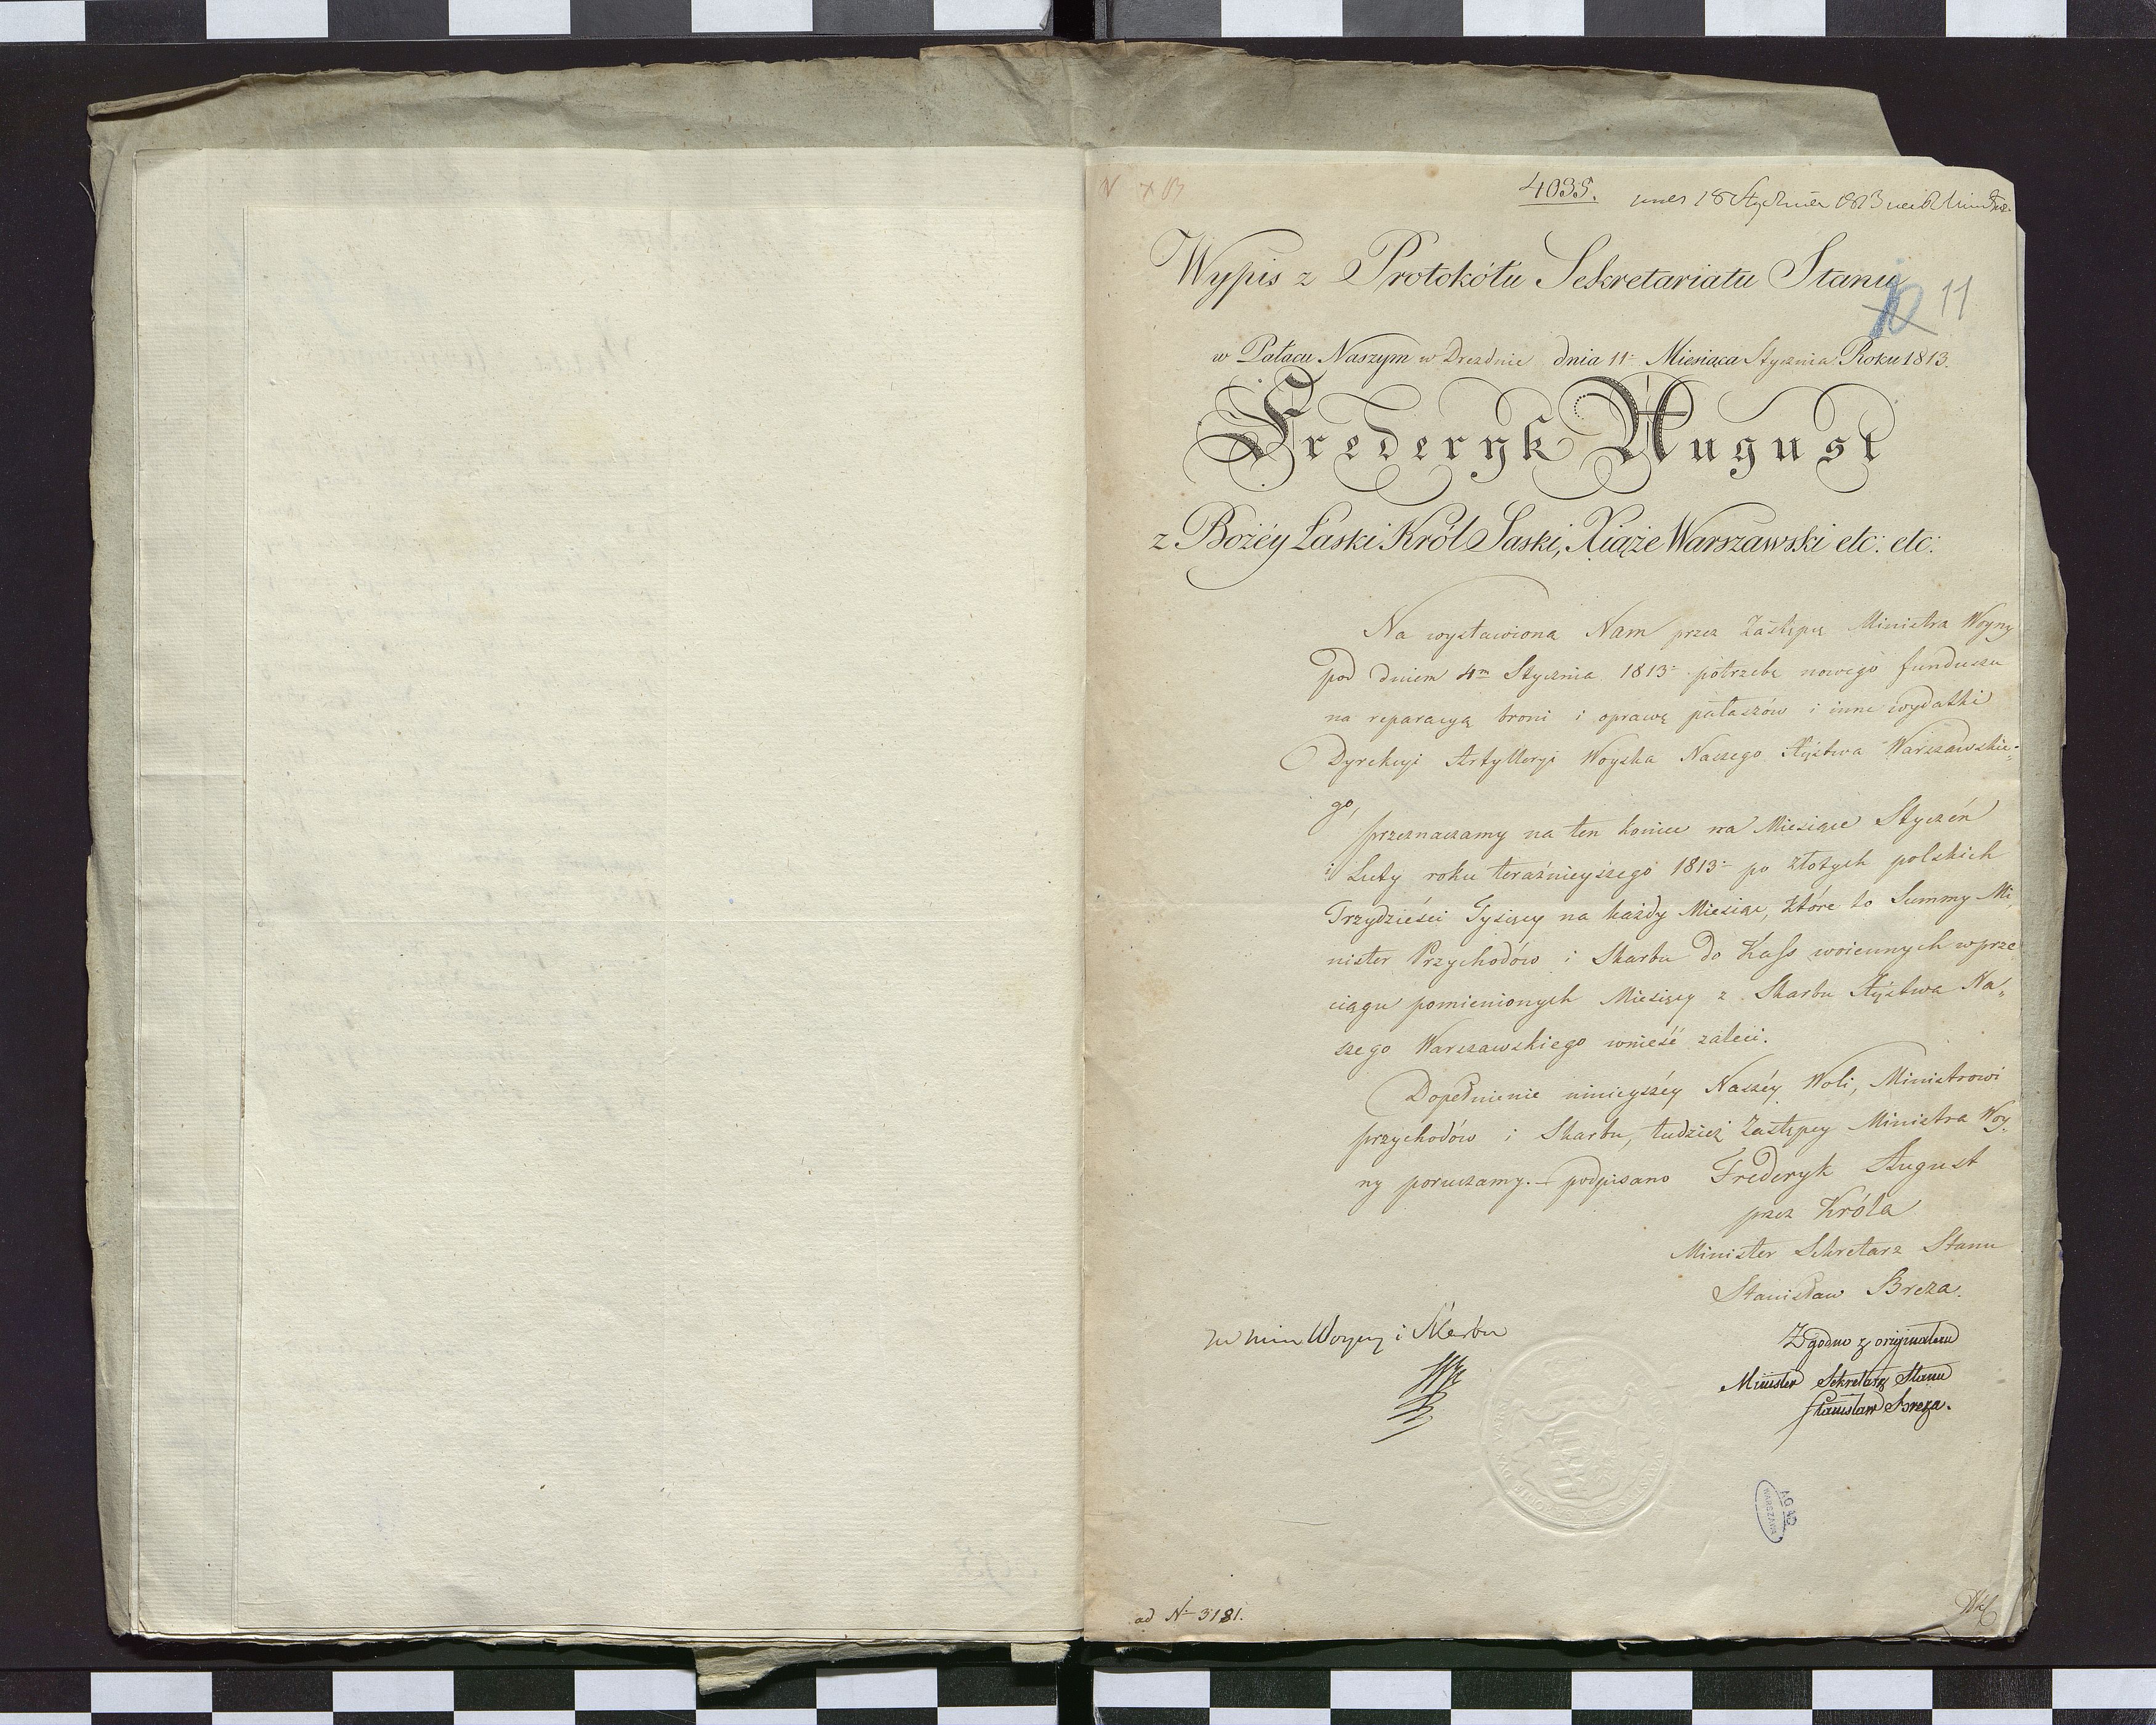 4035.
Wypis z Protokółu Sekretariatu Stanu
10 11
w Pałacu Naszym w Dreznie dnia 11 Miesiąca Stycznia Roku 1813.
Frederyk August
z Bożéy Łaski Król Saski, Xiąże Warszawski etc: etc:
Na wystawioną Nam przez Zastępcę Ministra Woyny
pod dniem 4m Stycznia 1813 potrzebę nowego funduszu
na reparacyą broni i oprawę pałaszów i inne wydatki
Dyrekcyi Artylleryi Woyska Naszego Xięstwa Warszawskie-
go,
przeznaczamy na ten koniec na Miesiące Styczeń
i Luty roku teraźnieyszego 1813 po złotych polskich
Trzydzieści Tysięcy na każdy Miesiąc, które to Summy Mi-
nister Przychodów i Skarbu do Kass woiennych w prze
ciągu pomienionych Miesięcy z Skarbu Xięstwa Na„
szego Warszawskiego wnieść zaleci.
Dopełnienie ninieyszéy Naszéy Woli, Ministrowi
przychodów i Skarbu, tudzież Zastępcy Ministra Woy-
ny poruczamy. — podpisano Frederyk August
przez Króla
Minister Sekretarz Stanu
Stanisław Breza.
Min Woyny i Skarbu
Zgodno z oryginałem
Minister Sekretarz Stanu
Stanisław Breza.
AGAD
WARSZAWA
ad N 3181.